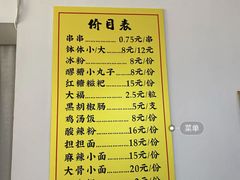 价目表
串串……………0.75元/串
钵钵小/大……8元/12元
冰粉……………8元/份
醪糟小丸子……8元/份
红糖糍粑………15元/份
大福……………2.5元/粒
黑胡椒肠………5元/支
鸡汤饭…………8元/份
酸辣粉…………16元/份
担担面…………18元/份
麻辣小面………15元/份
大骨小面………20元/份
菜单